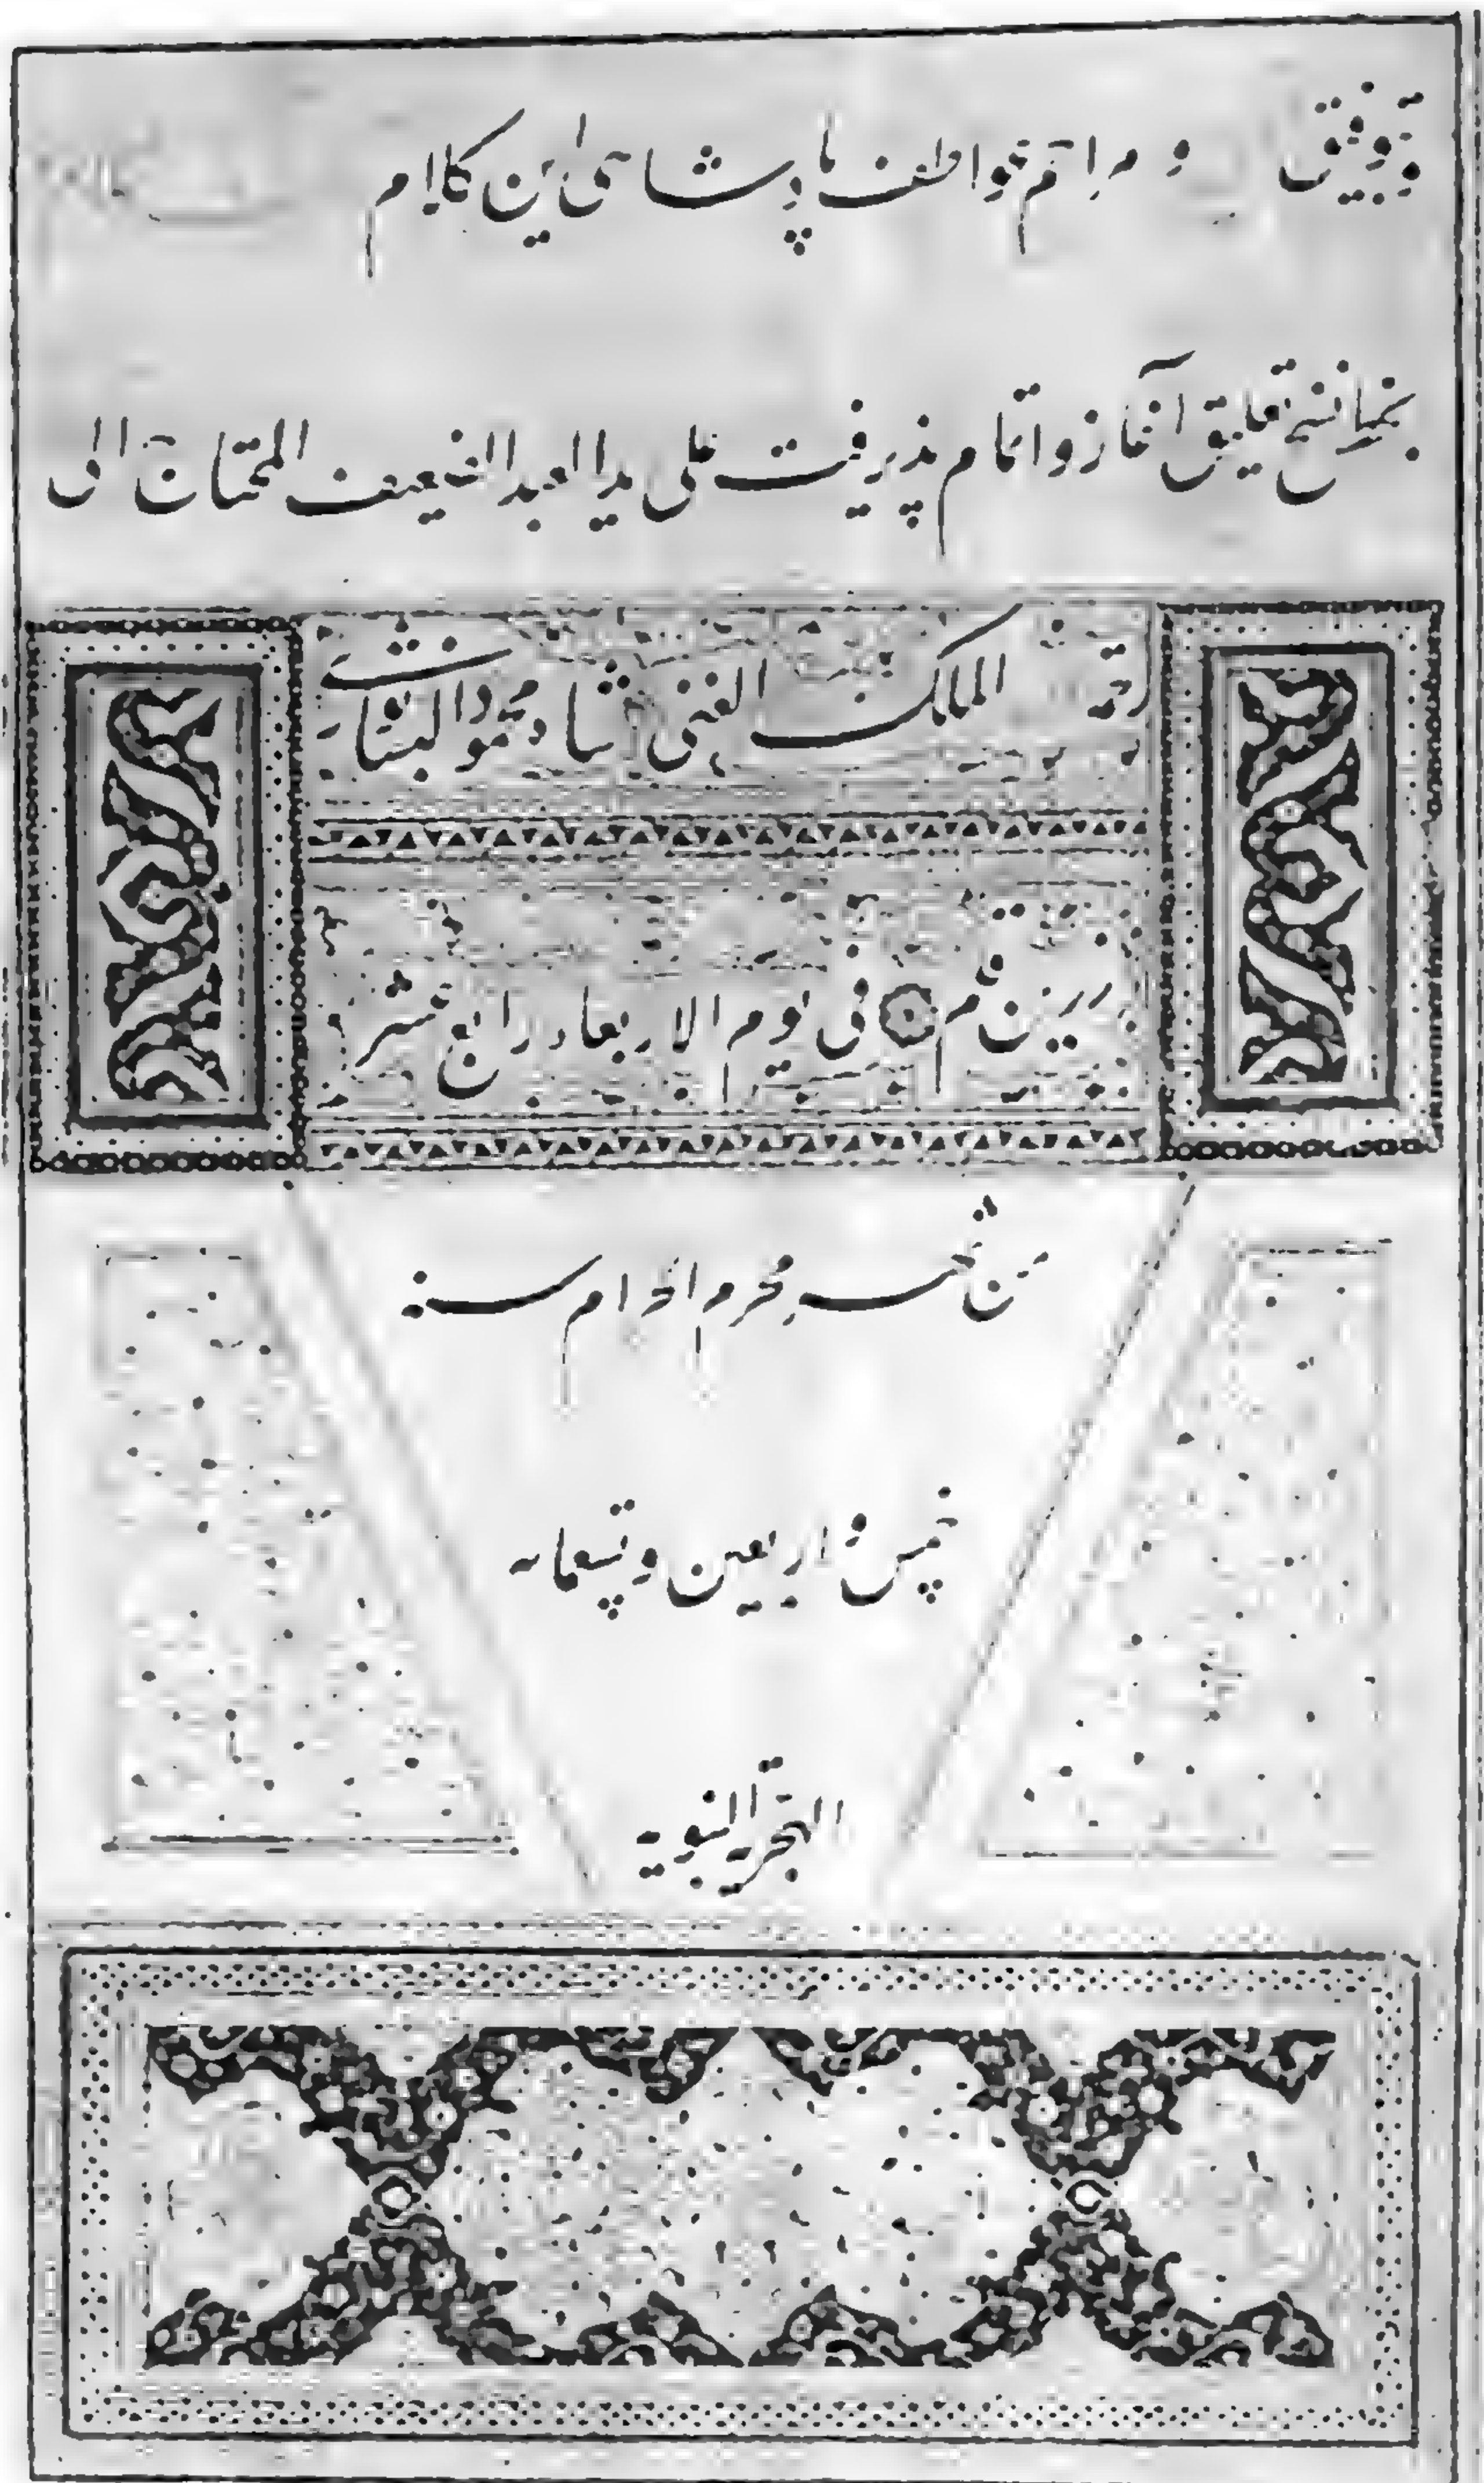 و توفیق و مراحم عواطف پادشاهی این کلام
بخط نسخ تعلیق آغاز و اتمام پذیرفت علی ید العبد الضعیف المحتاج الی
الملک الغنی شاه محمود النیشابوری
زرین قلم فی یوم الاربعاء رابع عشر
من شهر محرم الحرام سنه
خمس و اربعین و تسعمایه
الهجریة النبویة